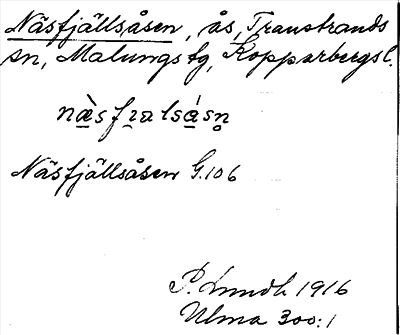 Näsfjällsåsen, ås, Transtrands
sn, Malungs tg, Kopparbergs l.
Näsfjällsåsen G.106
P. Lundh 1916
Ulma 300:1